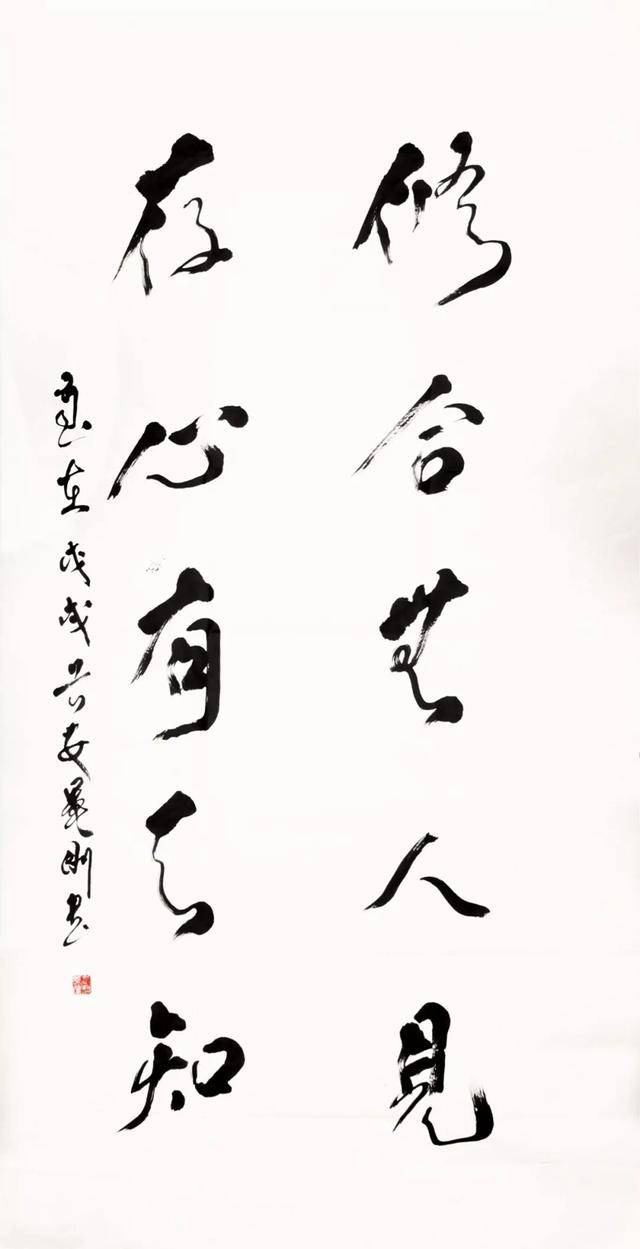 修合無人見
存心有天知
戊戌 書